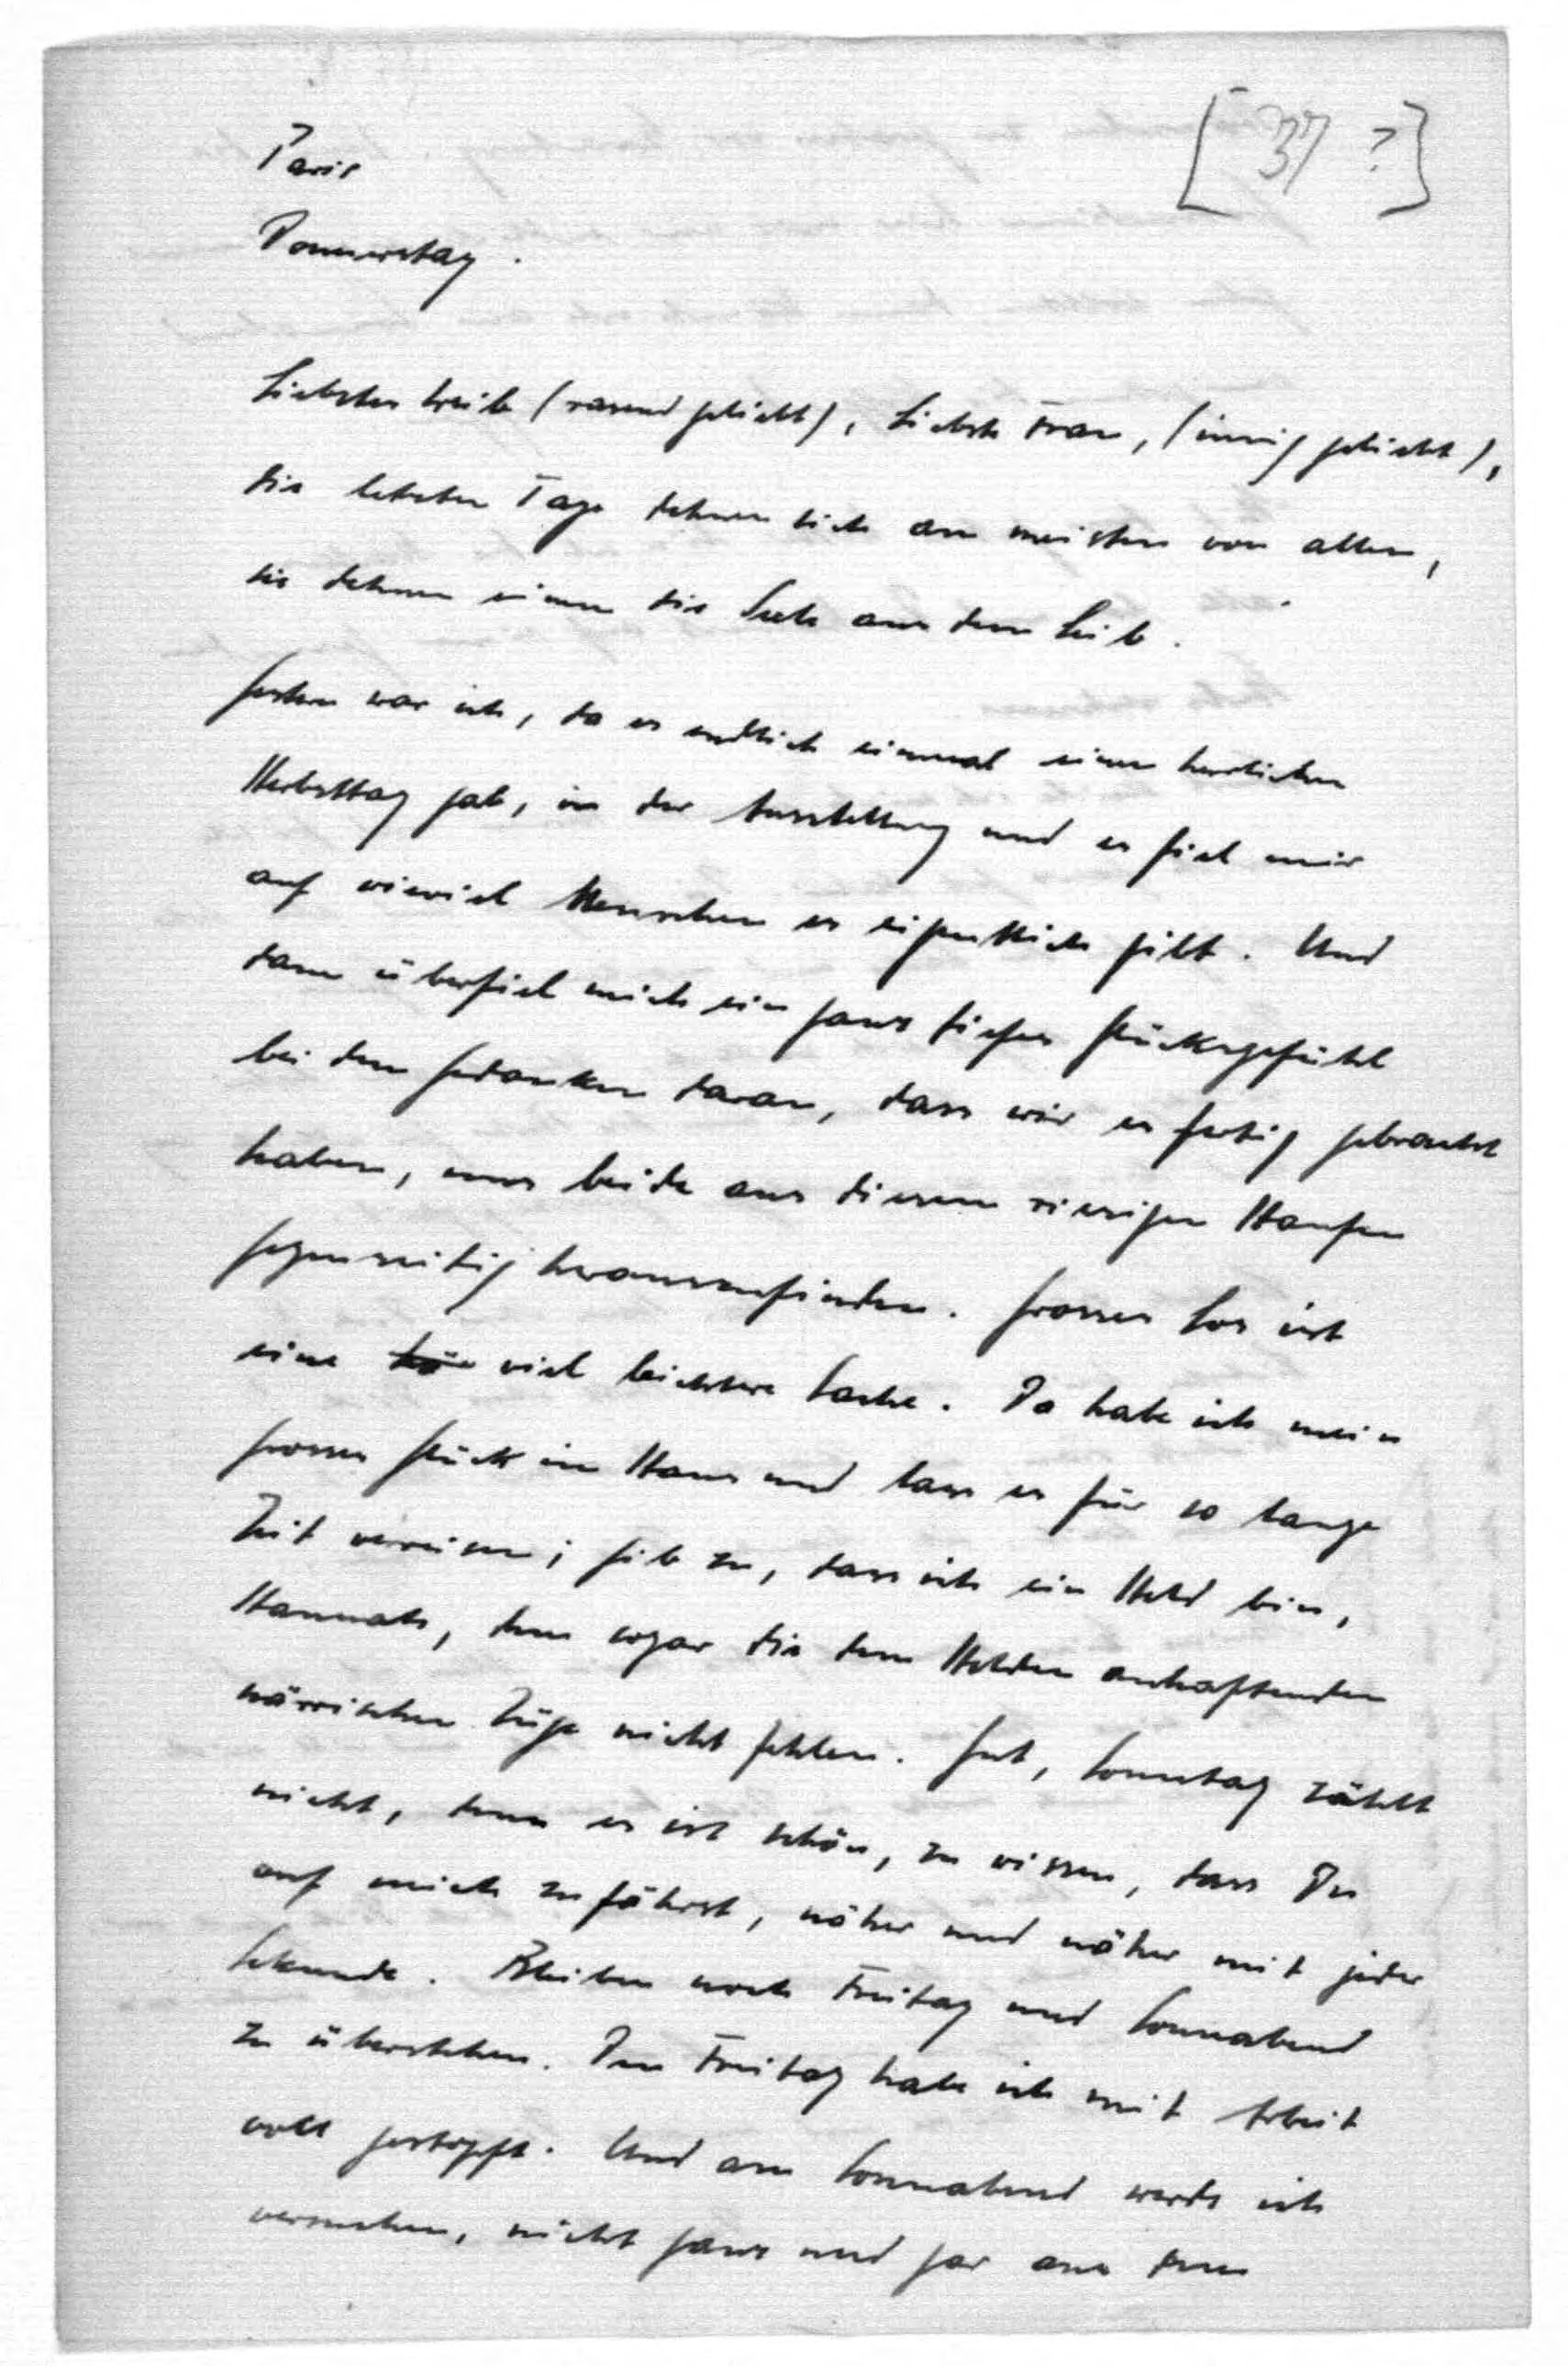 [37 ?]
Paris
Donnerstag.
Liebstes Weib (rasend geliebt), Liebste Frau, (innig geliebt),
die letzten Tage dehnen sich am meisten von allen,
sie dehnen einem die Seele aus dem Leib.
Gestern war ich, da es endlich einmal einen herrlichen
Herbsttag gab, in der Ausstellung und es fiel mir
auf wieviel Menschen es eigentlich gibt. Und
dann überfiel mich ein ganz tiefes Glücksgefühl
bei dem Gedanken daran, dass wir es fertig gebracht
haben, uns beide aus diesem riesigen Haufen
gegenseitig herauszufinden. Grosses Los ist
eine viel leichtere Sache. Da habe ich mein
grosses Glück im Haus und lass es für so lange
Zeit verreisen; gib zu, dass ich ein Held bin,
Hannah, dem sogar die dem Helden anhaftenden
närrischen Züge nicht fehlen. Gut, Sonntag zählt
nicht, denn es ist schön, zu wissen, dass Du
auf mich zufährst, näher und näher mit jeder
Sekunde. Bleiben noch Freitag und Sonnabend
zu überstehen. Den Freitag habe ich mit Arbeit
voll gestopft. Und am Sonnabend werde ich
versuchen, nicht ganz und gar aus dem